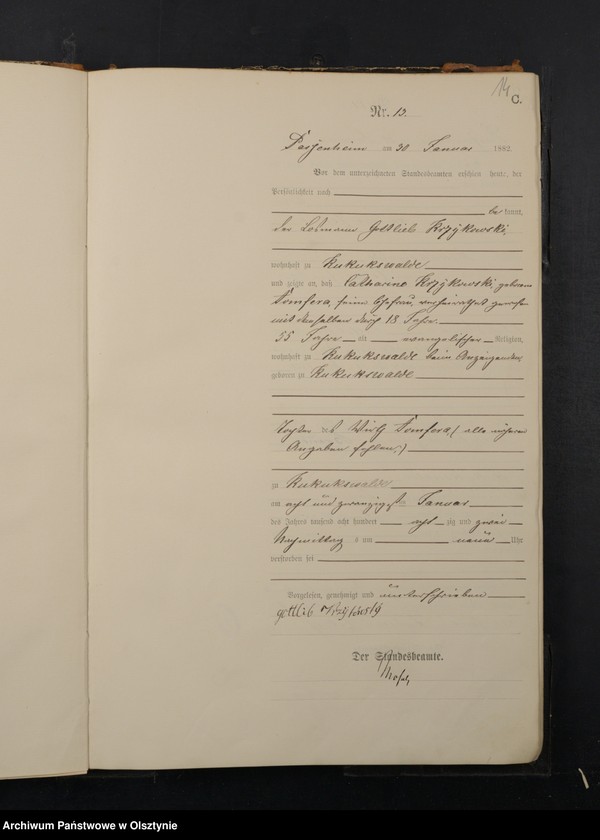 14
C.
Nr. 13.
Passenheim am 30 Januar 1882.
Vor dem unterzeichneten Standesbeamten erschien heute, der
Persönlichkeit nach
be kannt,
der Losmann Gottlieb Krzykowski,
wohnhaft zu Kukukswalde
und zeigte an, daß Catharina Krzykowski, geborene
Tomfora, seine Ehefrau, verheirathet gewesen
mit demselben durch 18 Jahr
55 Jahre alt evangelischer Religion,
wohnhaft zu Kukukswalde beim Anzeigenden,
geboren zu Kukukswalde
Tochter des Wirth Tomfora, (alle näheren
Angaben fehlen,)
zu Kukukswalde
am acht und zwanzigsten Januar
des Jahres tausend acht hundert acht zig und zwei
Nachmittag s um neun Uhr
verstorben sei
Vorgelesen, genehmigt und unterschrieben
gottlieb
Der Standesbeamte.
Archiwum Państwowe w Olsztynie